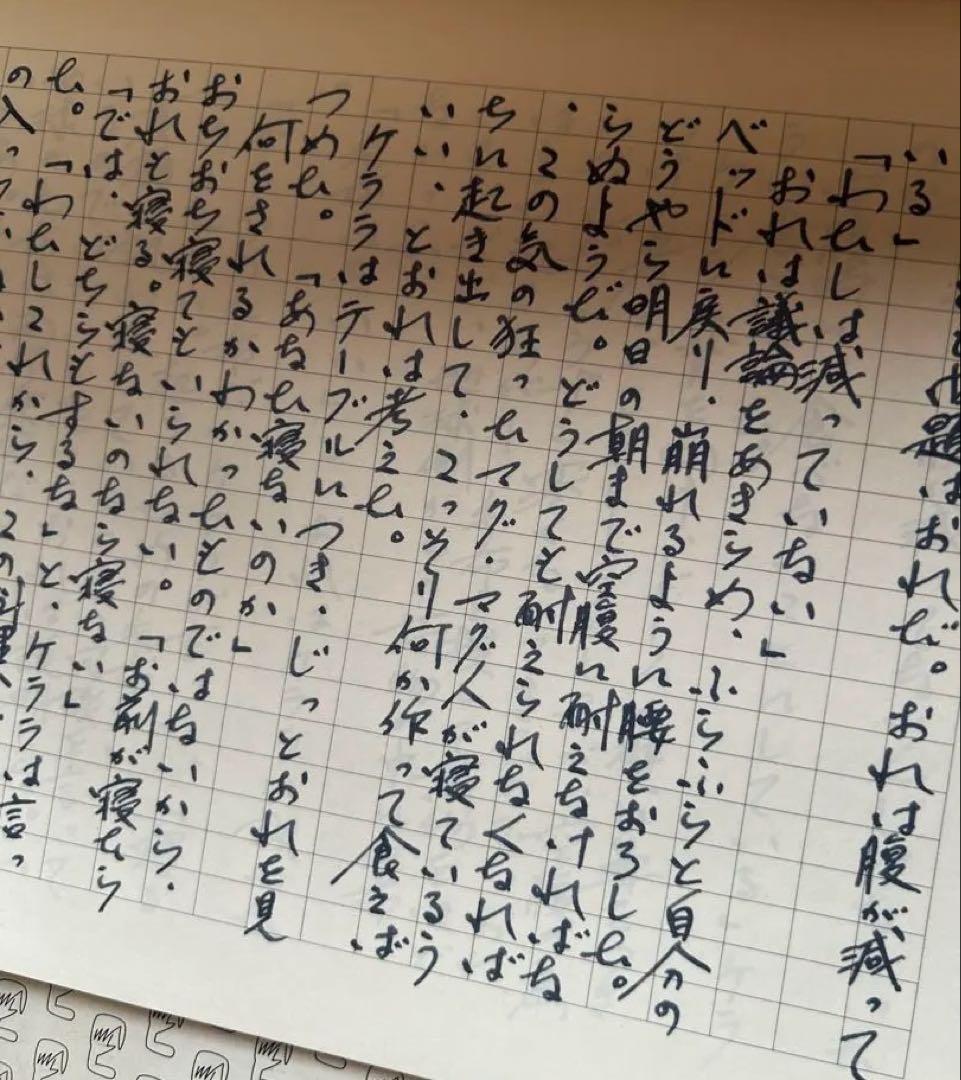 題はおれだ。おれは腹が減って
いる」
「わたしは減っていない」
おれは議論をあきらめ、ふらふらと自分の
ベッドに戻り、崩れるように腰をおろした。
どうやら明日の朝まで空腹に耐えなければな
らぬようだ。どうしても耐えられなくなれば
、この気の狂ったマグ・マグ人が寝ているう
ちに起き出して、こっそり何か作って食えば
いい、とおれは考えた。
ケララはテーブルにつき、じっとおれを見
つめた。「あなた寝ないのか」
何をされるかわかったものではないから、
おちおち寝てもいられない。「お前が寝たら
おれも寝る。寝ないのなら寝ない」
「では、どちらもするな」と、ケララは言っ
た。「わたしこれから、
の